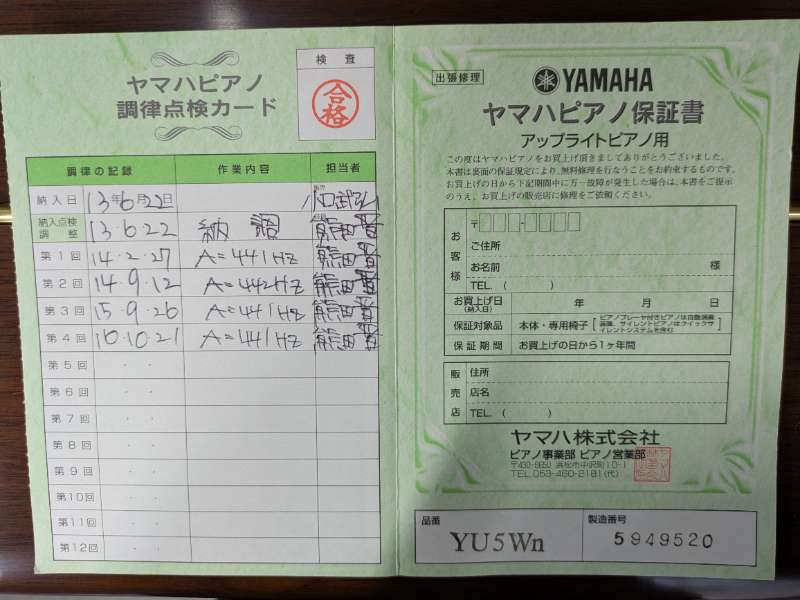 ヤマハピアノ
調律点検カード
検査
合格
調律の記録 作業内容 担当者
納入日 13年6月22日
納入点検調整 13.6.22 納調 熊田
第1回 14.2.27 A=441Hz 熊田
第2回 14.9.12 A=442Hz 熊田
第3回 15.9.26 A=441Hz 熊田
第4回 16.10.21 A=441Hz 熊田
第5回 . .
第6回 . .
第7回 . .
第8回 . .
第9回 . .
第10回 . .
第11回 . .
第12回 . .
出張修理
YAMAHA
ヤマハピアノ保証書
アップライトピアノ用
この度はヤマハピアノをお買上げ頂きましてありがとうございました。
本書は裏面の保証規定により、無料修理を行なうことをお約束するものです。
お買上げの日から下記期間中に万一故障が発生した場合は、本書をご提示
のうえ、お買上げの販売店に修理をご依頼ください。
お客様
〒
ご住所
お名前 様
TEL. ( )
お買上げ日(納入日) 年 月 日
保証対象品 本体・専用椅子 [ピアノプレーヤ付きピアノは自動演奏
装置、サイレントピアノはクイックサ
イレントシステムを含む]
保証期間 お買上げの日から1ヶ年間
販売店
住所
店名
TEL. ( )
ヤマハ株式会社
ピアノ事業部 ピアノ営業部
〒430-8650 浜松市中沢町10-1
TEL.053-460-2181(代)
品番 YU5Wn
製造番号 5949520